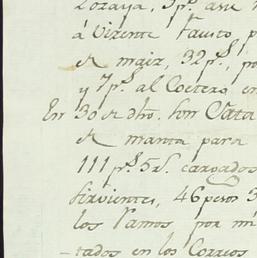 Lozaya, 3p.s
á Vizente Fausto, p
de maiz, 32p.s, po
y 7p.s al Coetero en
En 30 de dho. son Cata
de manta para
111 p.s 5 r.s cargados
sirvientes, 46 pesos 3
los Ramos por mi
-tados en los Correos